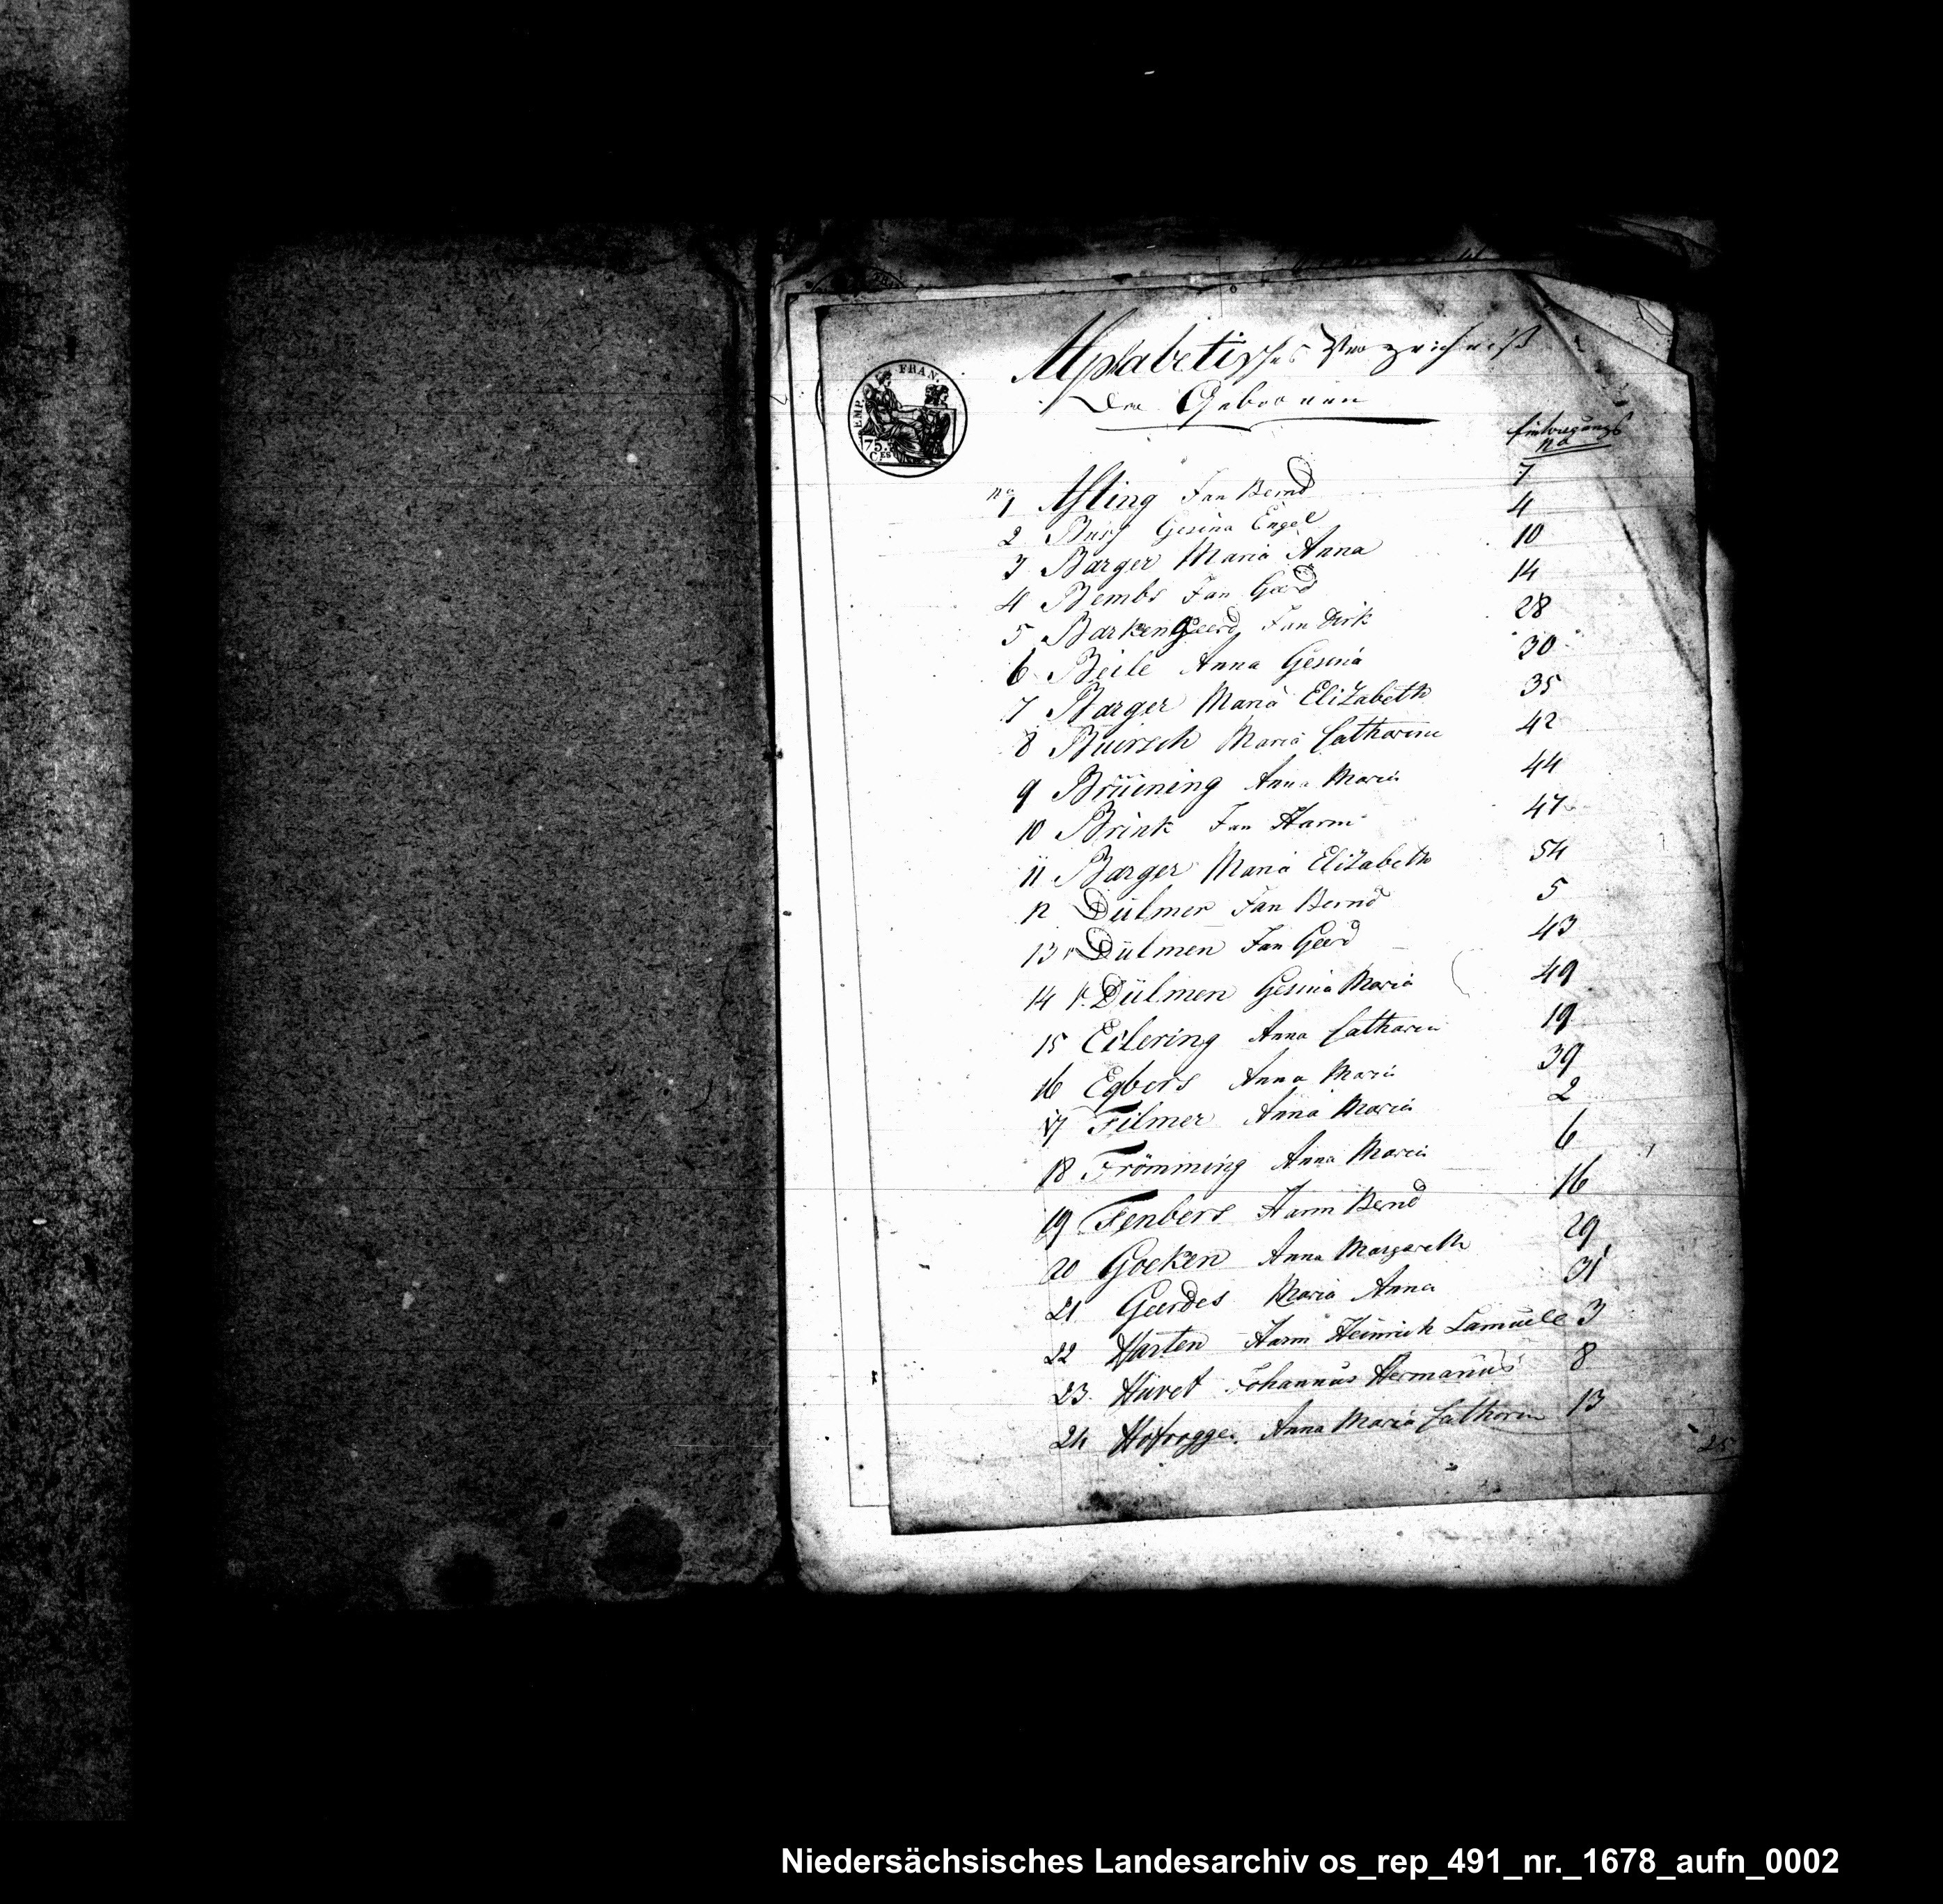 Alphabetisches Verzeichniß
der Gebornen
EMP. FRAN.
75.
CES
Eintragungs
no
no
1 Asling Jan Bernd 7
2 Gesina Engel 4
3 Barger Maria Anna 10
4 Bembs Jan Geerd 14
5 Barkengeerd Jan Dirk 28
6 Beile Anna Gesina 30
7 Barger Maria Elizabeth 35
8 Buirsch Maria Catharina 42
9 Brüining Anna Maria 44
10 Brink Jan Harm 47
11 Barger Maria Elizabeth 54
12 Dülmer Jan Bernd 5
13 v Dülmen Jan Geerd 43
14 v. Dülmen Gesina Maria 49
15 Eilering Anna Catharin 19
16 Egbers Anna Maria 39
17 Filmer Anna Maria 2
18 Frömming Anna Maria 6
19 Fenbers Harm Bernd 16
20 Goeken Anna Margareth 29
21 Geerdes Maria Anna 31
22 Harten Harm Heinrich Samuele 3
23. Huvet Johannus Hermanus 8
24 Hofrogge. Anna Maria Catharin 13
25
Niedersächsisches Landesarchiv os_rep_491_nr._1678_aufn_0002